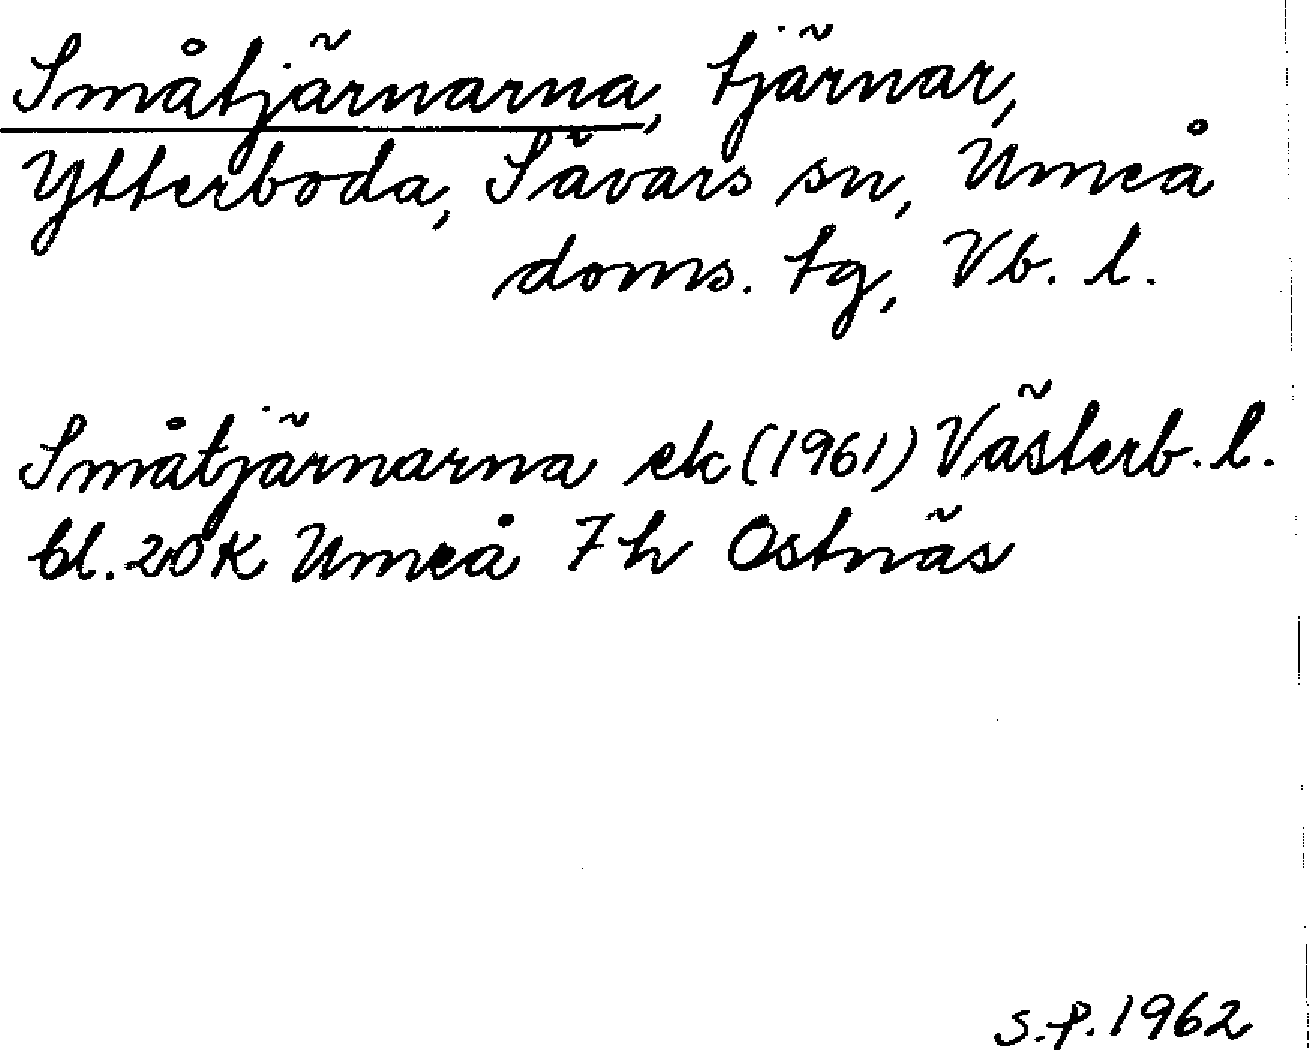 Småtjärnarna, tjärnar,
Ytterboda, Sävars sn, Umeå
doms. tg, Vb. l.
Småtjärnarna ek (1961) Västerb. l.
bl. 20 K Umeå 7 h Ostnäs
S.P. 1962